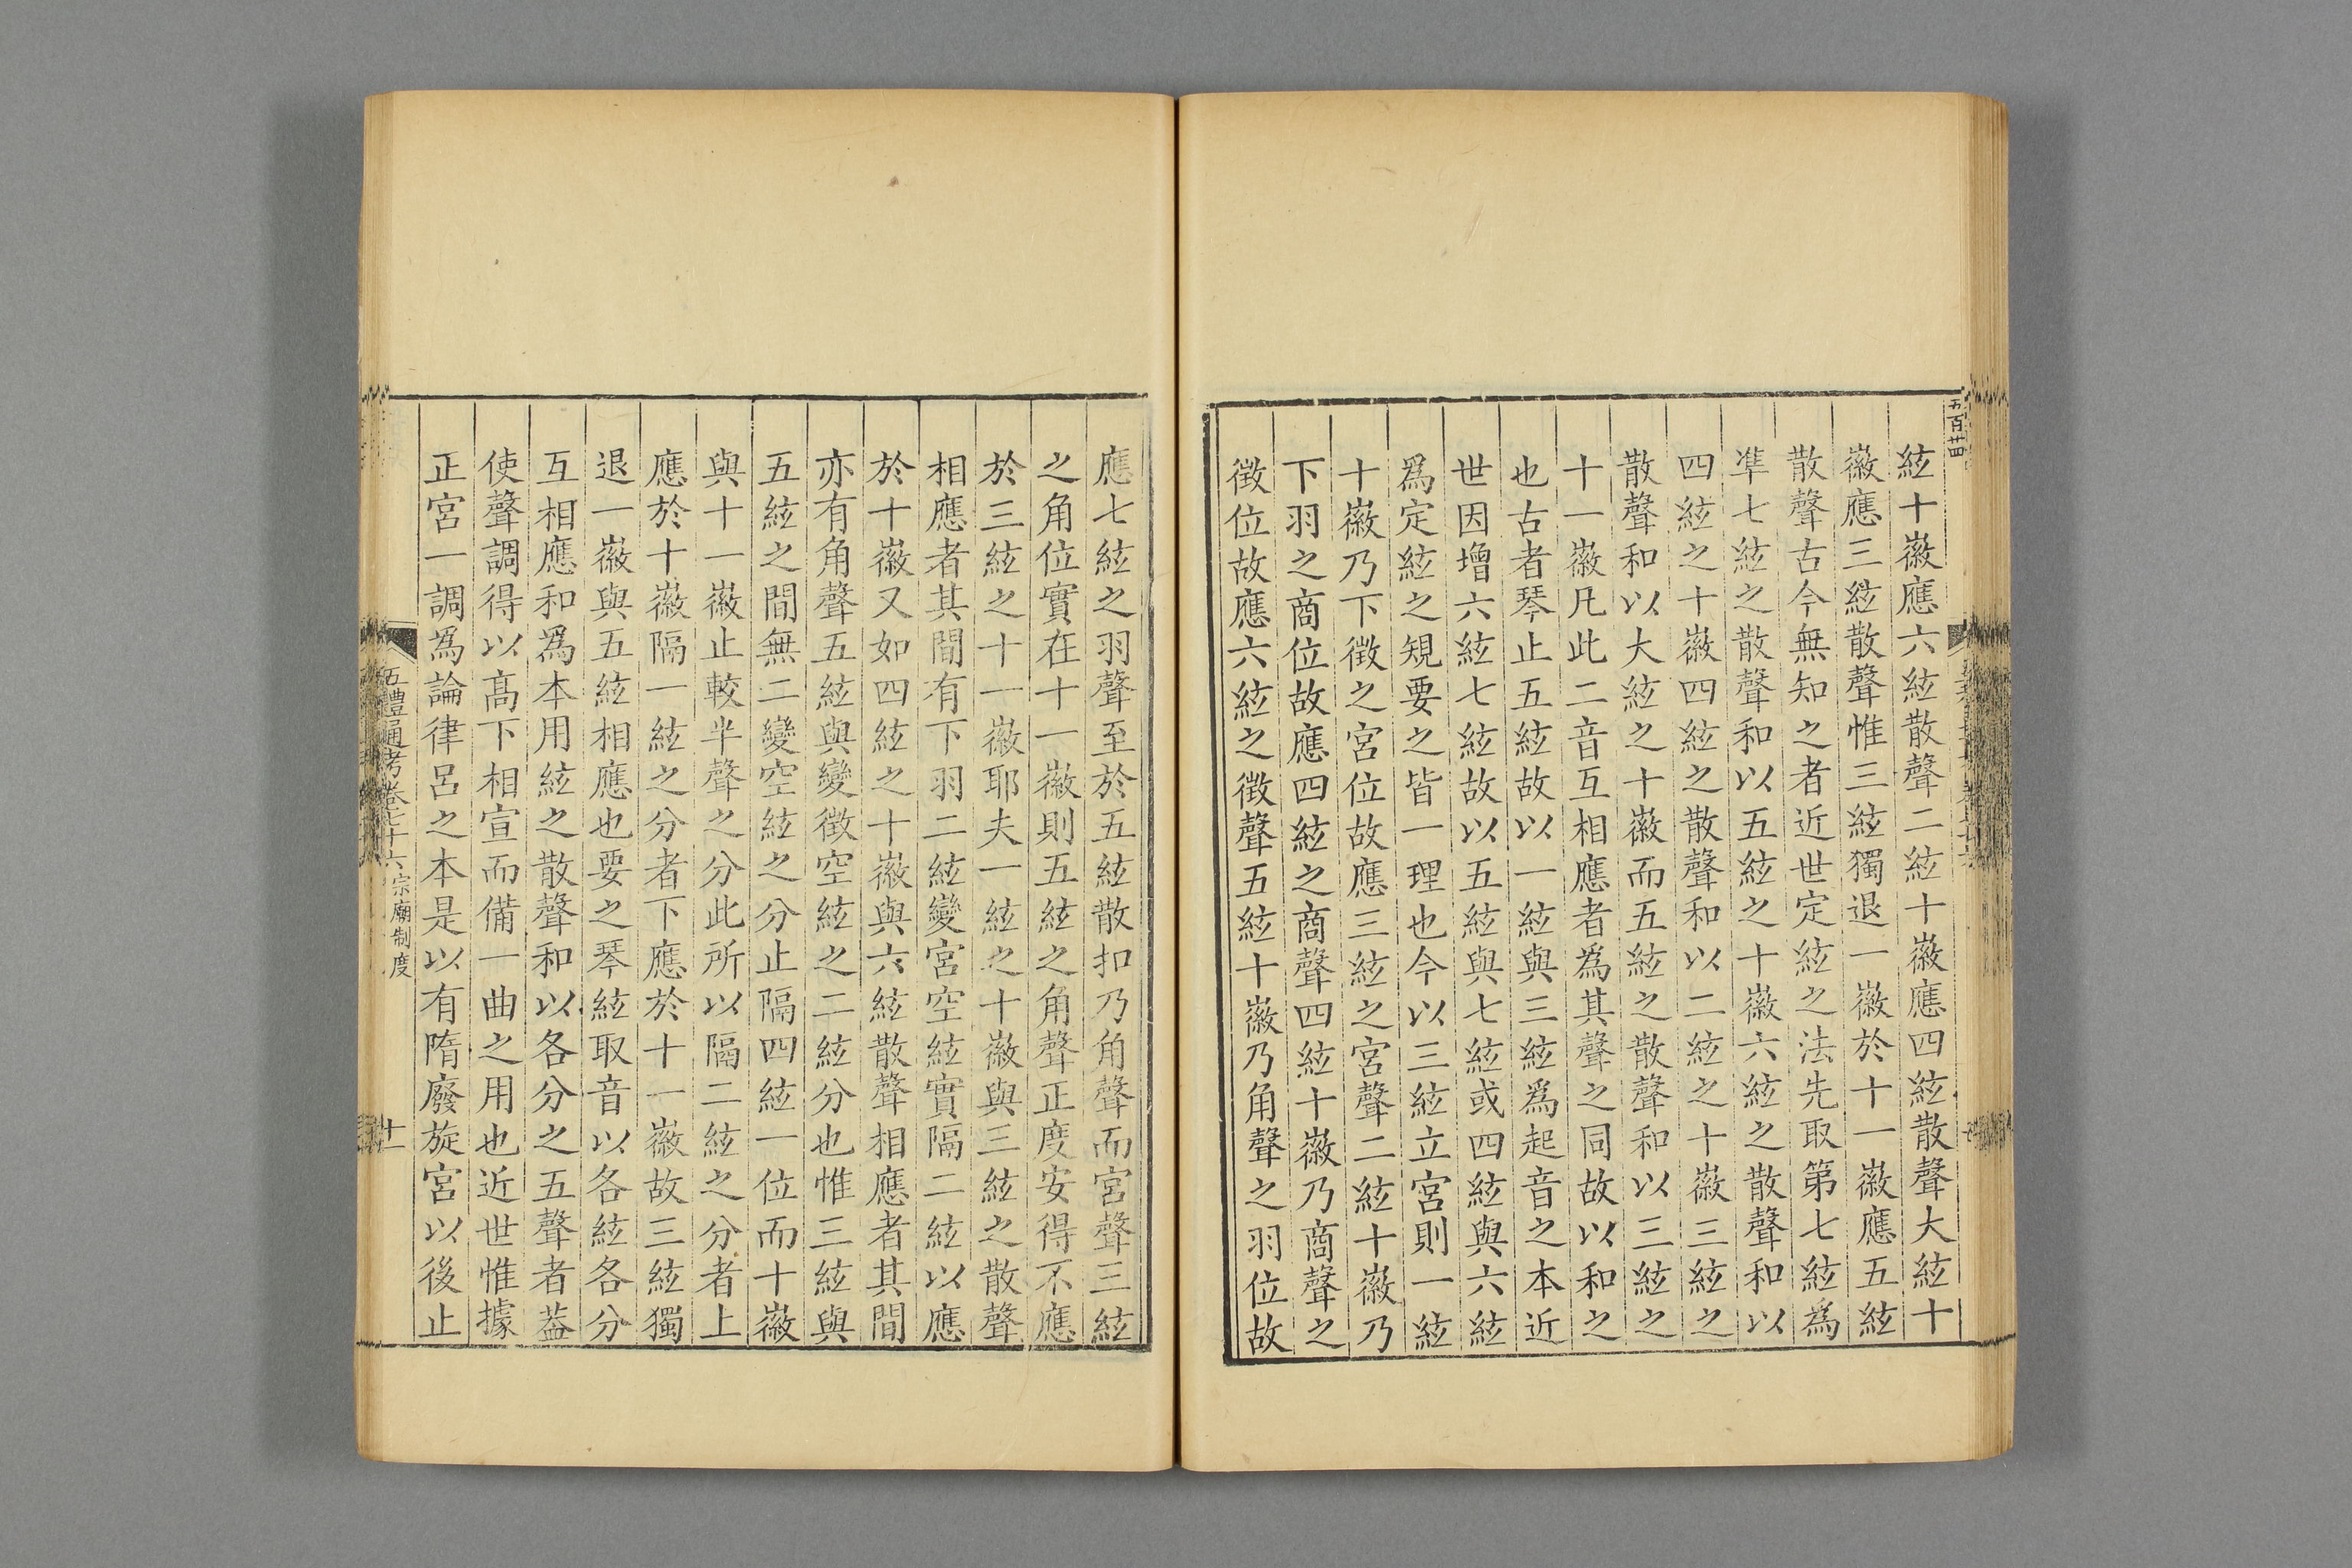 五百廿四
絃十徽應六絃散聲二絃十徽應四絃散聲大絃十
徽應三絃散聲惟三絃獨退一徽於十一徽應五絃
散聲古今無知之者近世定絃之法先取第七絃為
準七絃之散聲和以五絃之十徽六絃之散聲和以
四絃之十徽四絃之散聲和以二絃之十徽三絃之
散聲和以大絃之十徽而五絃之散聲和以三絃之
十一徽凡此二音互相應者為其聲之同故以和之
也古者琴止五絃故以一絃與三絃爲起音之本近
世因增六絃七絃故以五絃與七絃或四絃與六絃
爲定絃之規要之皆一理也今以三絃立宮則一絃
十徽乃下徵之宮位故應三絃之宮聲二絃十徽乃
下羽之商位故應四絃之商聲四絃十徽乃商聲之
徵位故應六絃之徵聲五絃十徽乃角聲之羽位故
應七絃之羽聲至於五絃散扣乃角聲而宮聲三絃
之角位實在十一徽則五絃之角聲正度安得不應
於三絃之十一徽耶夫一絃之十徽與三絃之散聲
相應者其間有下羽二絃變宮空絃實隔二絃以應
於十徽又如四絃之十徽與六絃散聲相應者其間
亦有角聲五絃與變徵空絃之二絃分也惟三絃與
五絃之間無二變空絃之分止隔四絃一位而十徽
與十一徽止較半聲之分此所以隔二絃之分者上
應於十徽隔一絃之分者下應於十一徽故三絃獨
退一徽與五絃相應也要之琴絃取音以各絃各分
互相應和爲本用絃之散聲和以各分之五聲者葢
使聲調得以高下相宣而備一曲之用也近世惟據
正宮一調爲論律呂之本是以有隋廢旋宮以後止
五禮通考卷七十六 宗廟制度 十一